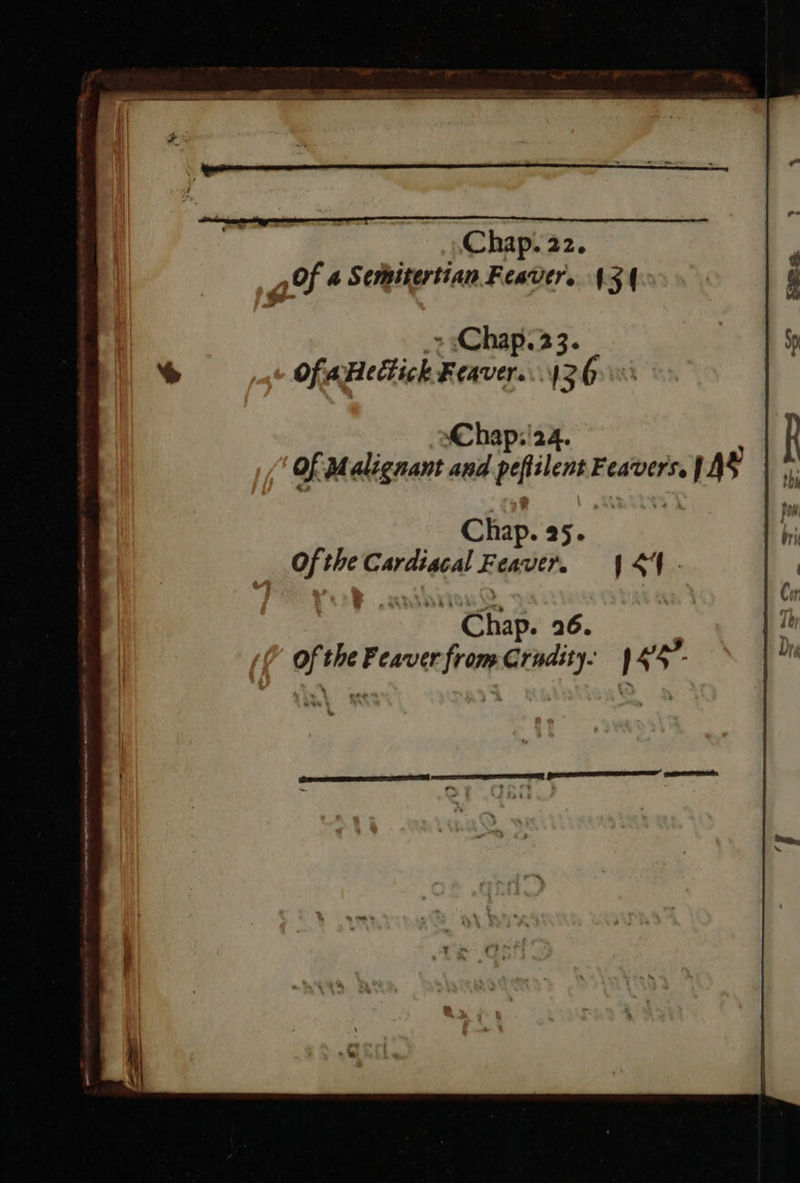 Chap. 22.
Of a Semitertian Feaver. 131
Chap. 23.
Of a Hectick Feaver. 136
Chap. 24.
Of Malignant and pestilent Feavers.
Chap. 25.
Of the Cardiacal Feaver.
Chap. 26.
Of the Feaver from Crudity.